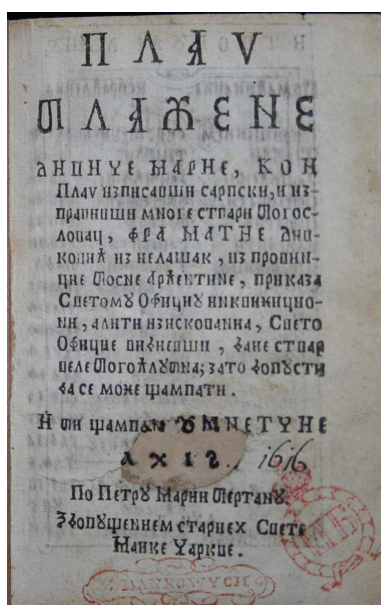 ПЛАЧ
БЛАЖЕНЕ
ДИВИЧЕ МАРИЕ, КОИ
Плач изписавши сарпски, и из-
правивши многе ствари Богос-
ловац, ФРА МАТИЕ Див-
ковић из Иелашак, из провин-
цие Босне Арћентине, приказа
Светому Официу инквижицио-
ни, алити изискованиа, Свето
Официе видивши, дане ствар
веле Богољубна; зато допусти
да се може щампати.
И би щампан У МНЕТЧИЕ
А Х І Ѕ. 1616
По Петру Марии Бертану.
З допущением старıех Свете
Маике Чаркве.